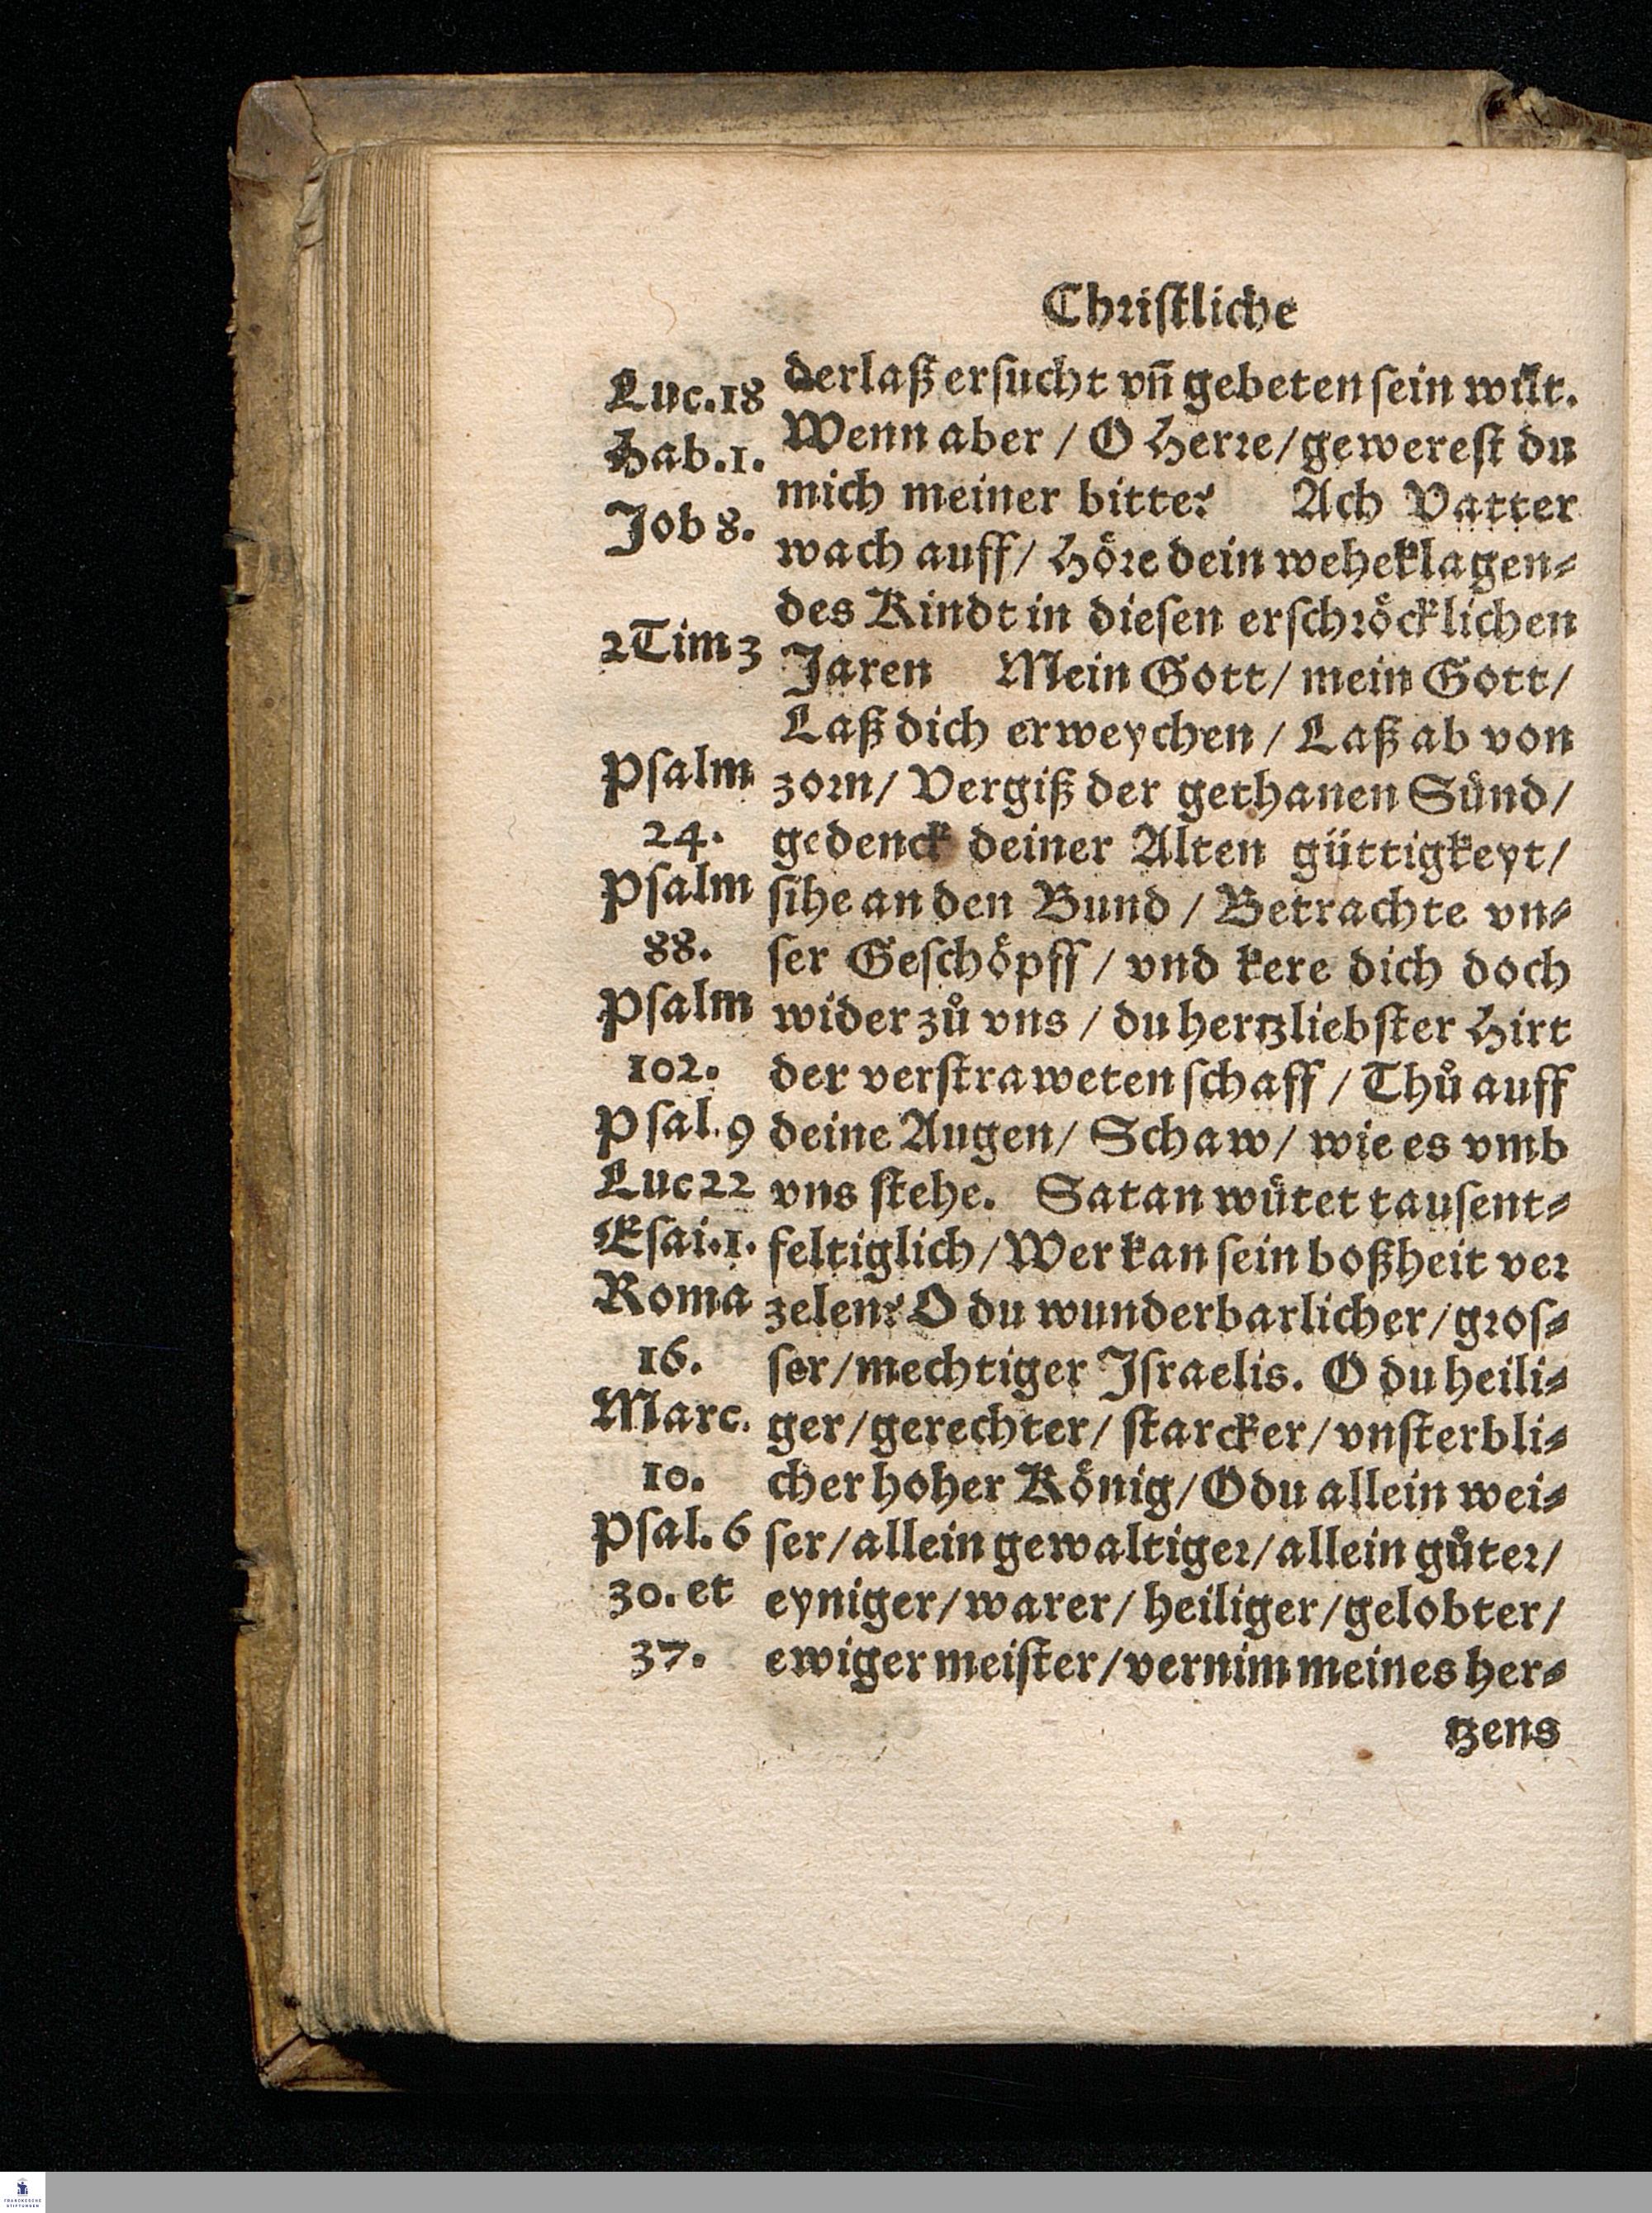 Chriſtliche
Luc.18
Hab.1.
Job 8.
2Tim3
Pſalm
24.
Pſalm
88.
Pſalm
102.
Pſal.9
Luc22
Eſai.1.
Roma
16.
Marc.
10.
Pſal.6
30.et
37.
derlaß erſucht vn̄ gebeten ſein wilt.
Wenn aber / O Herre/gewereſt du
mich meiner bitte? Ach Vatter
wach auff/ Höre dein weheklagen⸗
des Kindt in dieſen erſchröcklichen
Jaren Mein Gott/ mein Gott/
Laß dich erweychen / Laß ab von
zorn/ Vergiß der gethanen Sünd/
gedenck deiner Alten güttigkeyt/
ſihe an den Bund / Betrachte vn⸗
ſer Geſchöpff / vnd kere dich doch
wider zů vns / du hertzliebſter Hirt
der verſtraweten ſchaff / Thů auff
deine Augen/ Schaw/ wie es vmb
vns ſtehe. Satan wütet tauſent⸗
feltiglich/Wer kan ſein boßheit ver
zelen? O du wunderbarlicher/groſ⸗
ſer/mechtiger Iſraelis. O du heili⸗
ger/gerechter/ ſtarcker/vnſterbli⸗
cher hoher König/O du allein wei⸗
ſer/allein gewaltiger/allein gůter/
eyniger/warer/ heiliger/gelobter/
ewiger meiſter/vernim meines her⸗
tzens
FRANCKESCHE
STIFTUNGEN